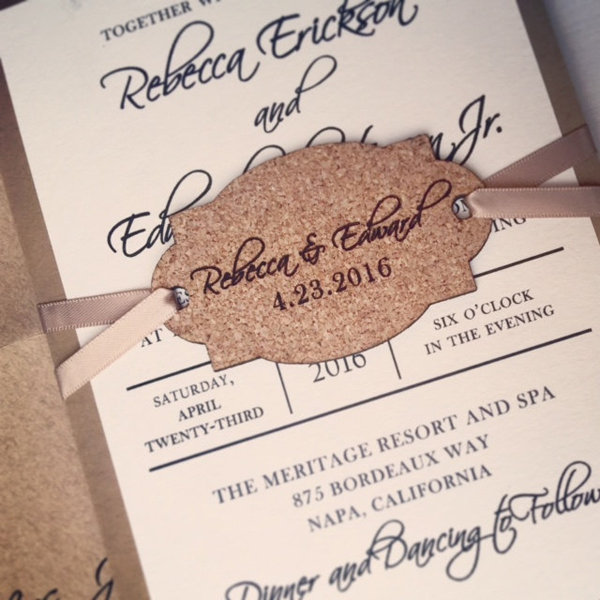 TOGETHER
Rebecca Erickson
and
Jr.
Rebecca & Edward
4.23.2016
AT
SATURDAY,
APRIL
TWENTY-THIRD
2016
SIX O'CLOCK
IN THE EVENING
THE MERITAGE RESORT AND SPA
875 BORDEAUX WAY
NAPA, CALIFORNIA
Dinner and Dancing to Follow